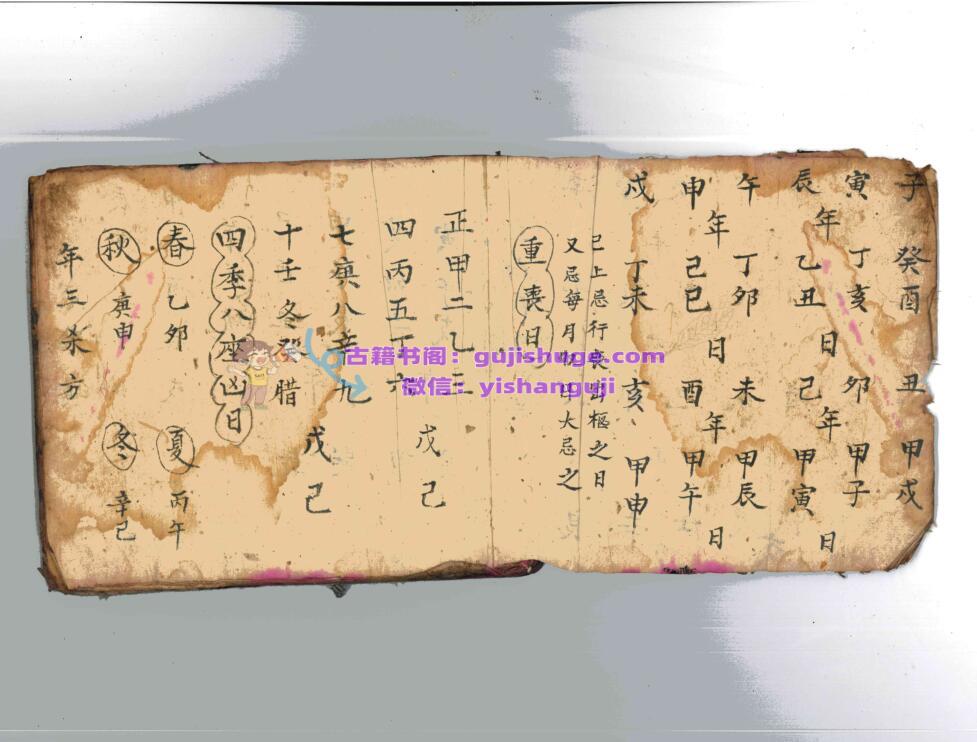 子 癸酉 丑 甲戌
寅 丁亥 卯 甲子
年 日 年 日
辰 乙丑 己 甲寅
午 丁卯 未 甲辰
年 日 年 日
申 己巳 酉 甲午
戌 丁未 亥 甲申
已上忌行丧出柩之日
又忌每月 大忌之
重丧日
正甲二乙三 戊己
四丙五丁六
七庚八辛九 戊己
十壬冬癸腊
四季八座凶日
春 乙卯 夏 丙午
秋 庚申 冬 辛己
年三杀方
古籍书阁：gujishuge.com
微信：yishanguji